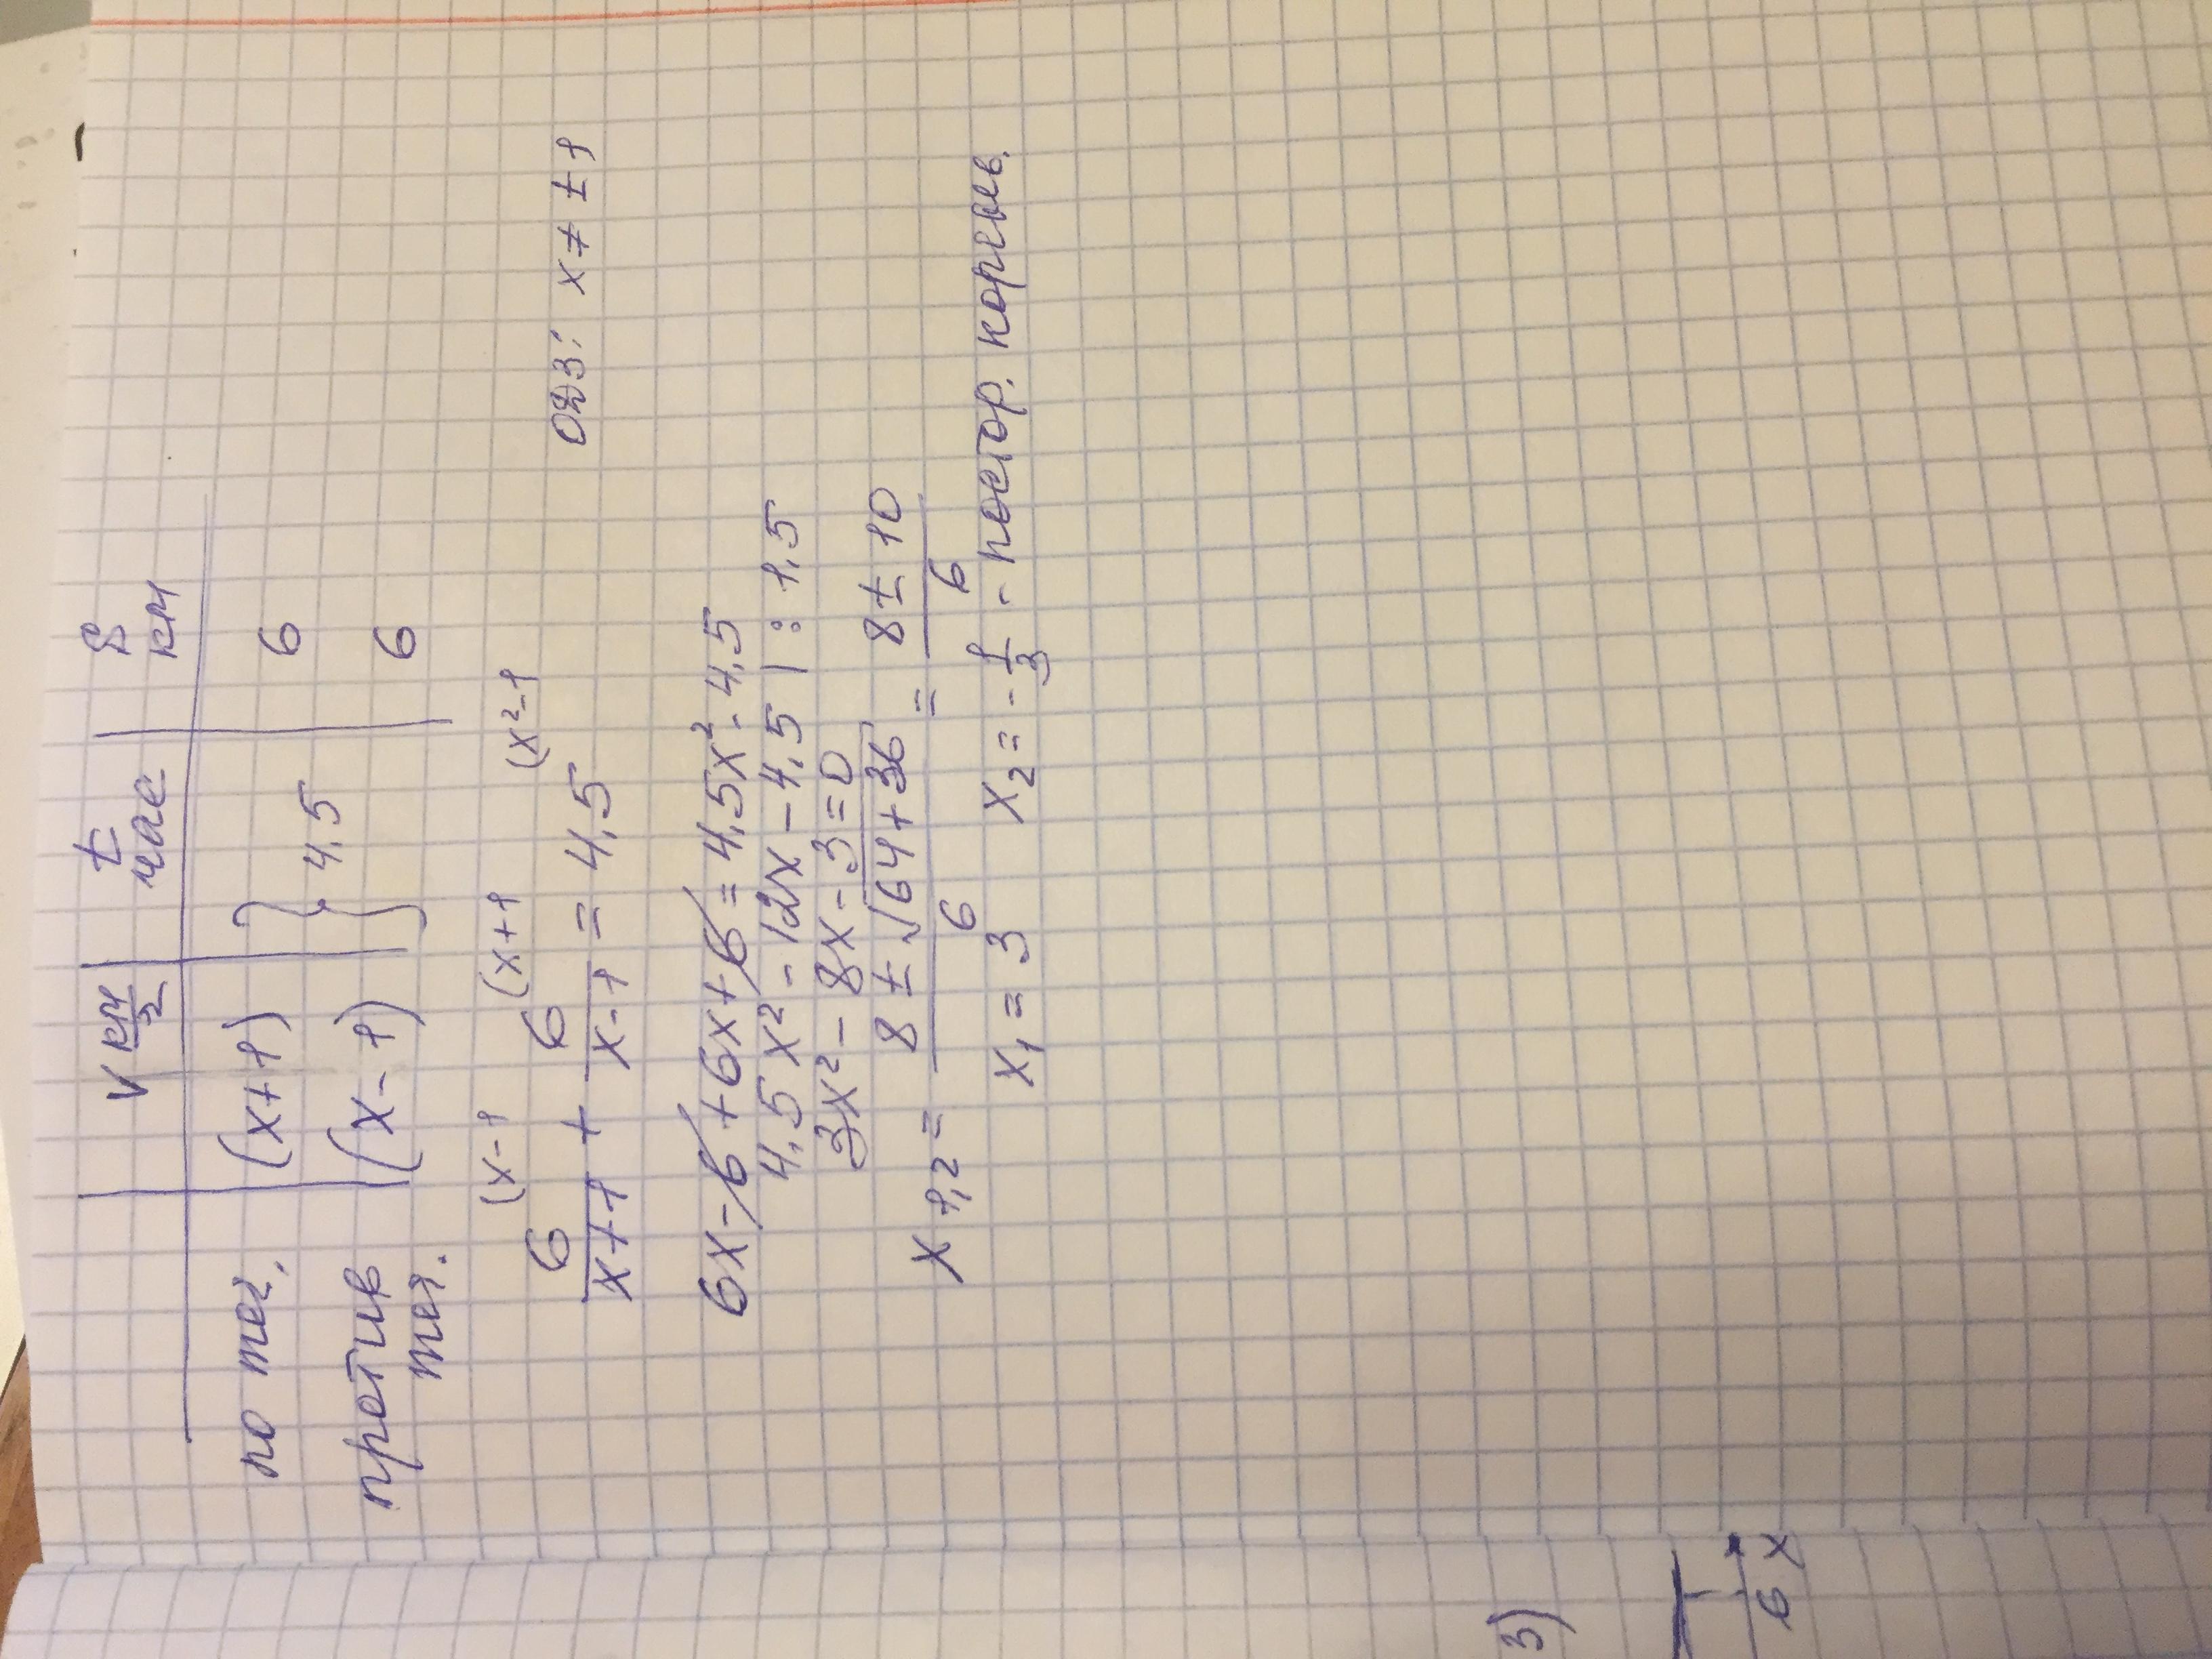 V км/г | t час | S км
по теч. (x+1) } 4,5 6
против теч. (x-1) 6
6/(x+1) (x-1 + 6/(x-1) (x+1 = 4,5 (x²-1
ОДЗ: x ≠ ±1
6x-6+6x+6=4,5x²-4,5
4,5x²-12x-4,5 |: 1,5
3x²-8x-3=0
x1,2 = (8±√64+36)/6 = (8±10)/6
x1=3 x2=-1/3 - постор. корень.
3)
6 x